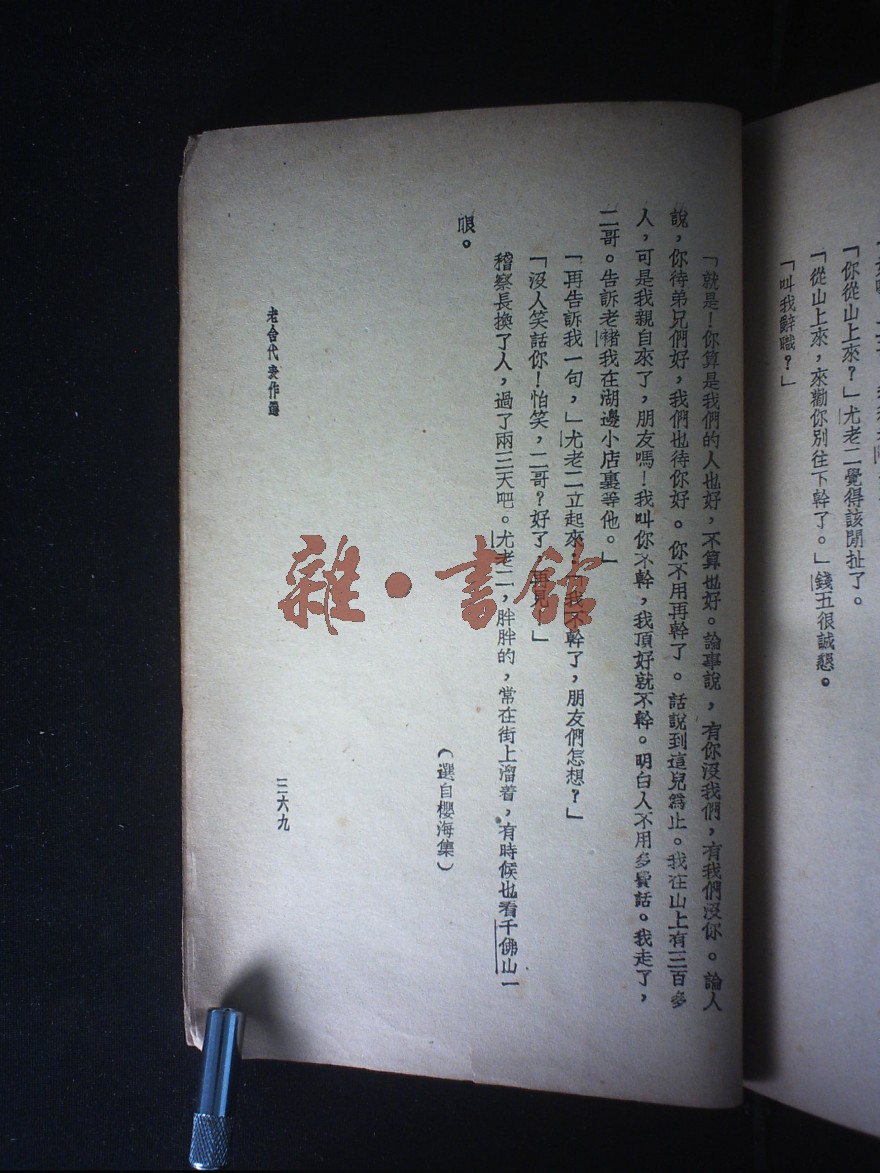 「你從山上來？」尤老二覺得該閒扯了。
「從山上來，來勸你別往下幹了。」錢五很誠懇。
「叫我辭職？」
「就是！你算是我們的人也好，不算也好。論事說，有你沒我們，有我們沒你。論人
說，你待弟兄們好，我們也待你好。你不用再幹了。話說到這兒為止。我在山上有三百多
人，可是我親自來了，朋友嗎！我叫你不幹，我頂好就不幹。明白人不用多費話。我走了，
二哥。告訴老褚我在湖邊小店裏等他。」
「再告訴我一句，」尤老二立起來「我不幹了，朋友們怎想？」
「沒人笑話你！怕笑，二哥？好了再見！」
稽察長換了人，過了兩三天吧。尤老二，胖胖的，常在街上溜着，有時候也看千佛山一
眼。
（選自櫻海集）
老舍代表作選
三六九
雜·書館